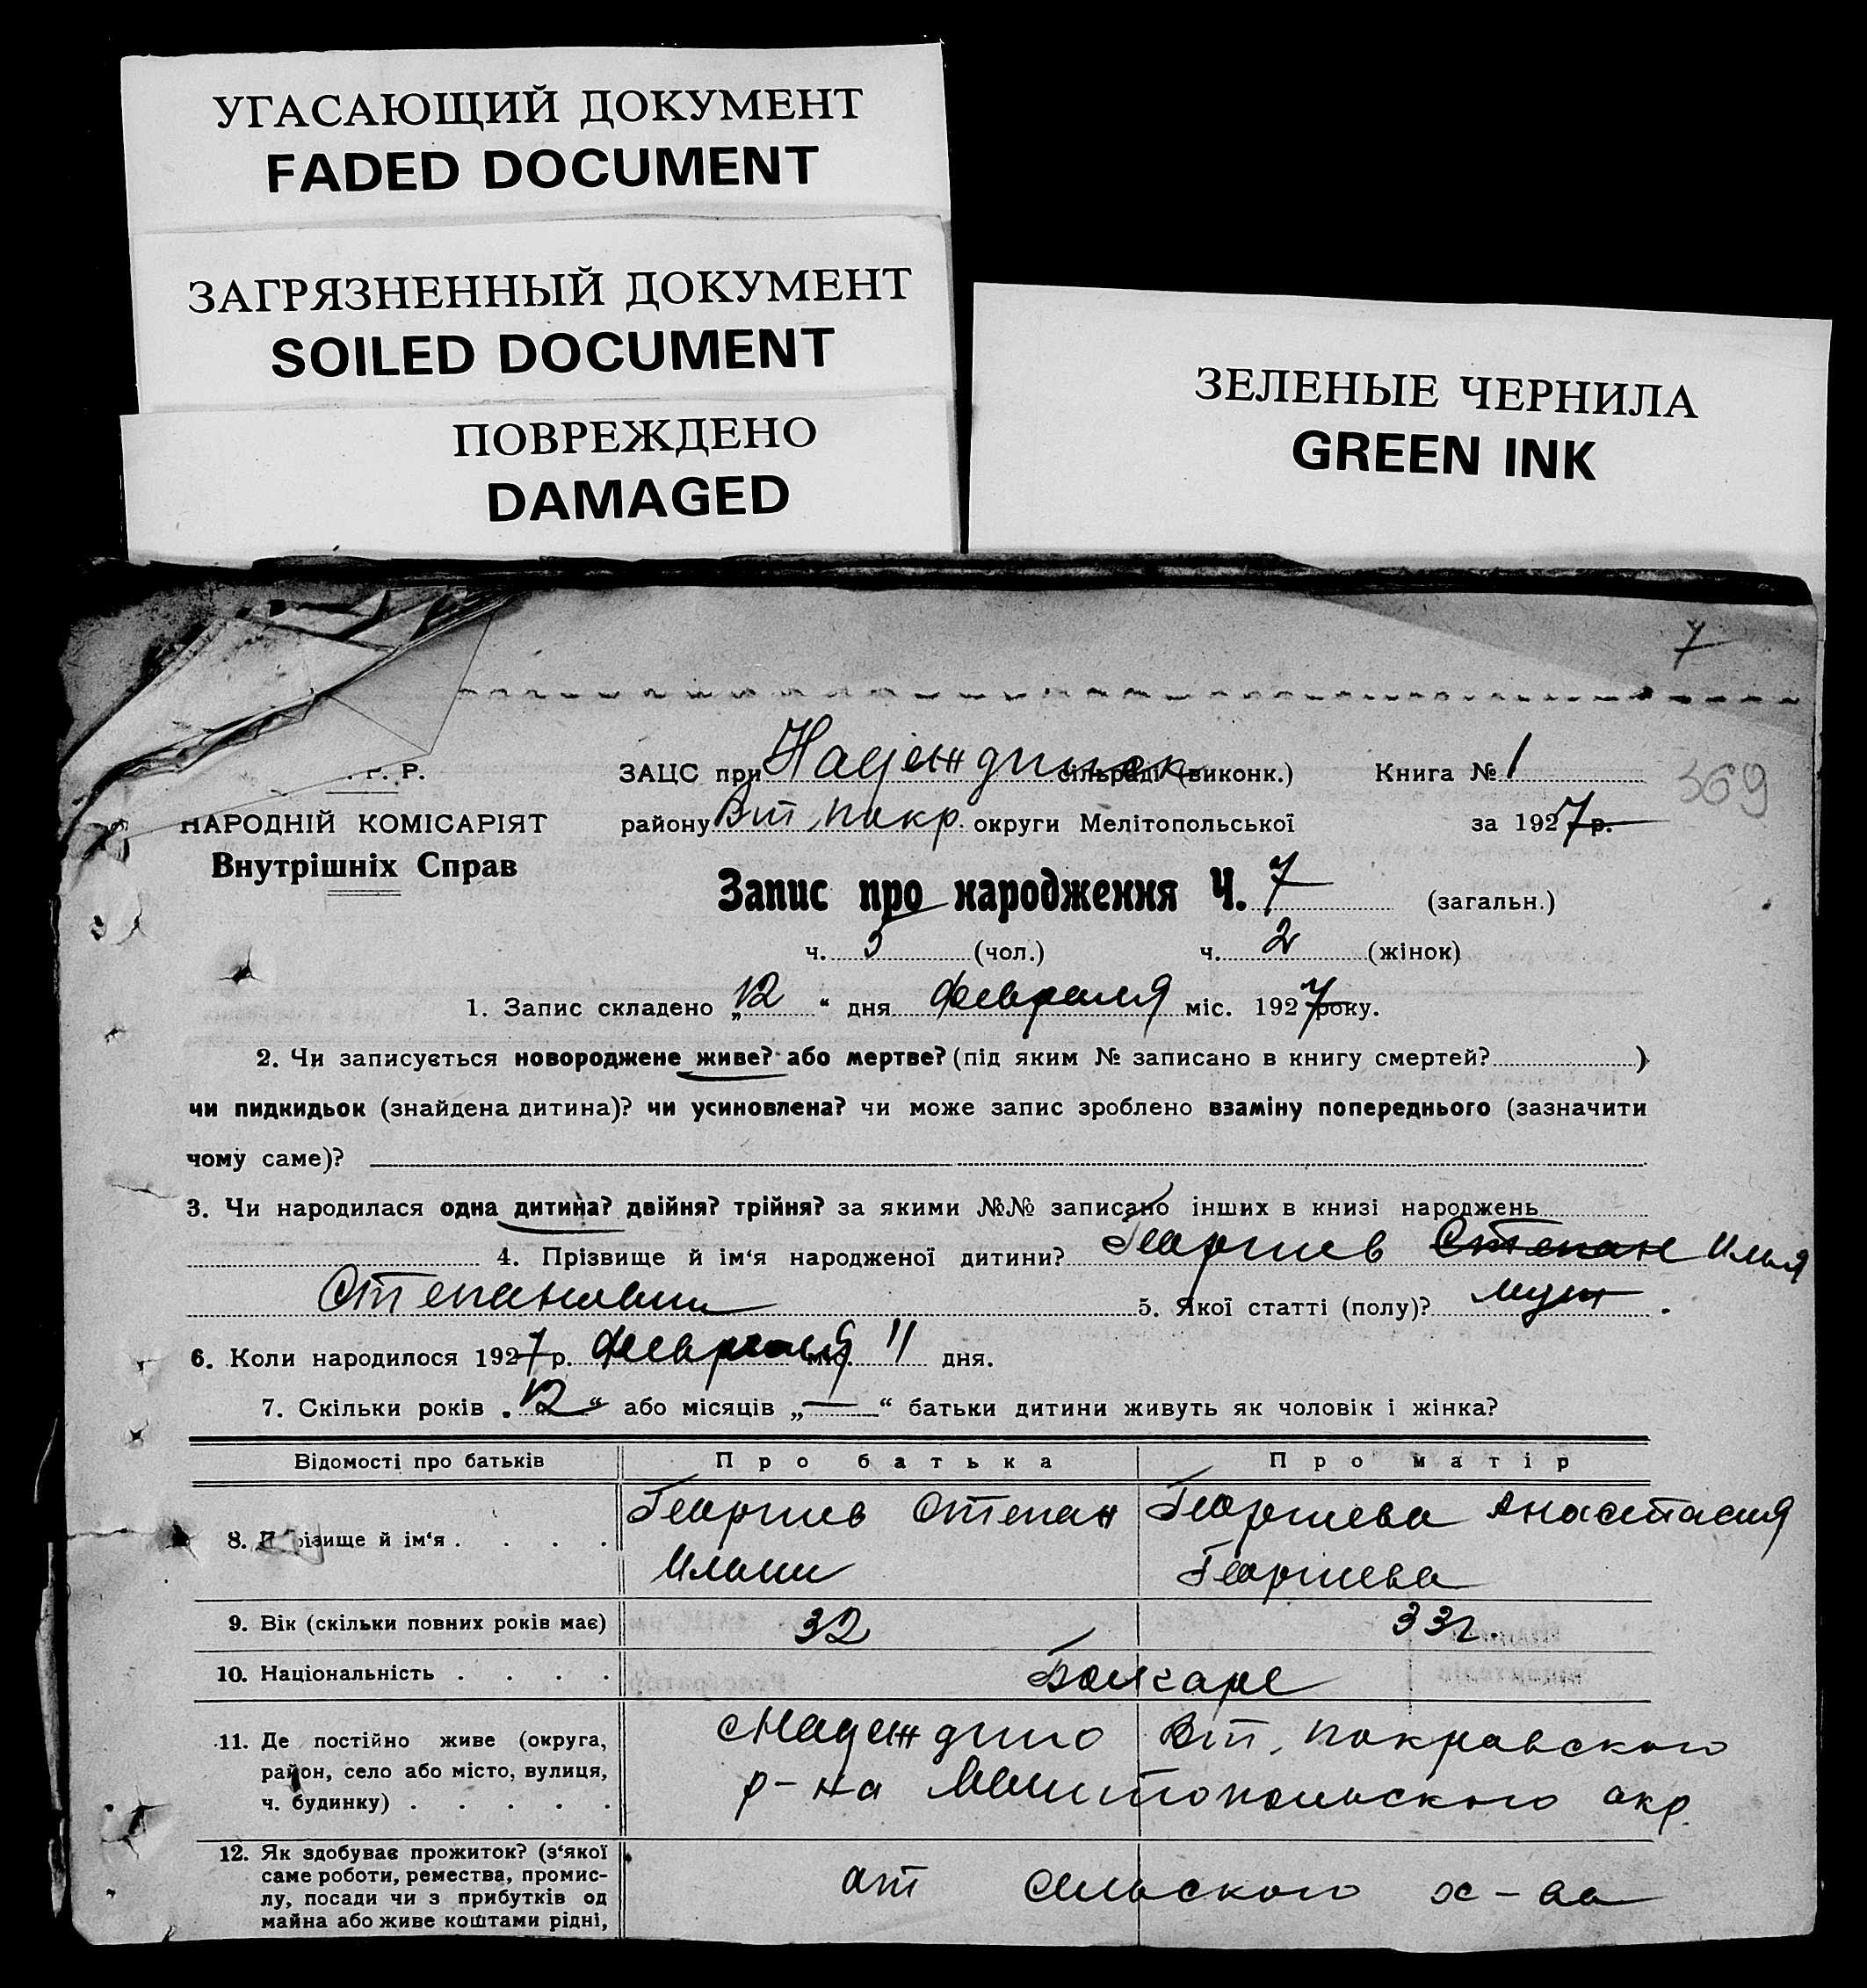 УГАСАЮЩИЙ ДОКУМЕНТ
FADED DOCUMENT
ЗАГРЯЗНЕННЫЙ ДОКУМЕНТ
SOILED DOCUMENT
ПОВРЕЖДЕНО
DAMAGED
ЗЕЛЕНЫЕ ЧЕРНИЛА
GREEN INK
7
Р. Р.
ЗАЦС при Надеждинск сільраді (виконк.) Книга № 1
369
НАРОДНІЙ КОМІСАРІЯТ
району Вт. покр. округи Мелітопольської за 1927 р.
Внутрішніх Справ
Запис про народження Ч. 7 (загальн.)
ч. 5 (чол.) ч. 2 (жінок)
1. Запис складено „12“ дня Февраля міс. 1927 року.
2. Чи записується новороджене живе? або мертве? (під яким № записано в книгу смертей? )
чи пидкидьок (знайдена дитина)? чи усиновлена? чи може запис зроблено взаміну попереднього (зазначити
чому саме)?
3. Чи народилася одна дитина? двійня? трійня? за якими №№ записано інших в книзі народжень
4. Прізвище й ім‘я народженої дитини? Георгиев Степан Илья
Степанович 5. Якої статті (полу)? муж.
6. Коли народилося 1927 р. Февраля міс. 11 дня.
7. Скільки років „12“ або місяців „—“ батьки дитини живуть як чоловік і жінка?
Відомості про батьків Про батька Про матір
8. Прізвище й ім‘я . . . . Георгиев Степан Георгиева Анастасия
Ильич Георгиева
9. Вік (скільки повних років має) 32 33г.
10. Національність . . . . Болгаре
11. Де постійно живе (округа, район, село або місто, вулиця, ч. будинку) . . . . . Надеждино Вт. покровского
р-на Мелитопольского окр.
12. Як здобуває прожиток? (з‘якої
саме роботи, ремества, промис-
лу, посади чи з прибутків од
майна або живе коштами рідні,
от сельского х-ва